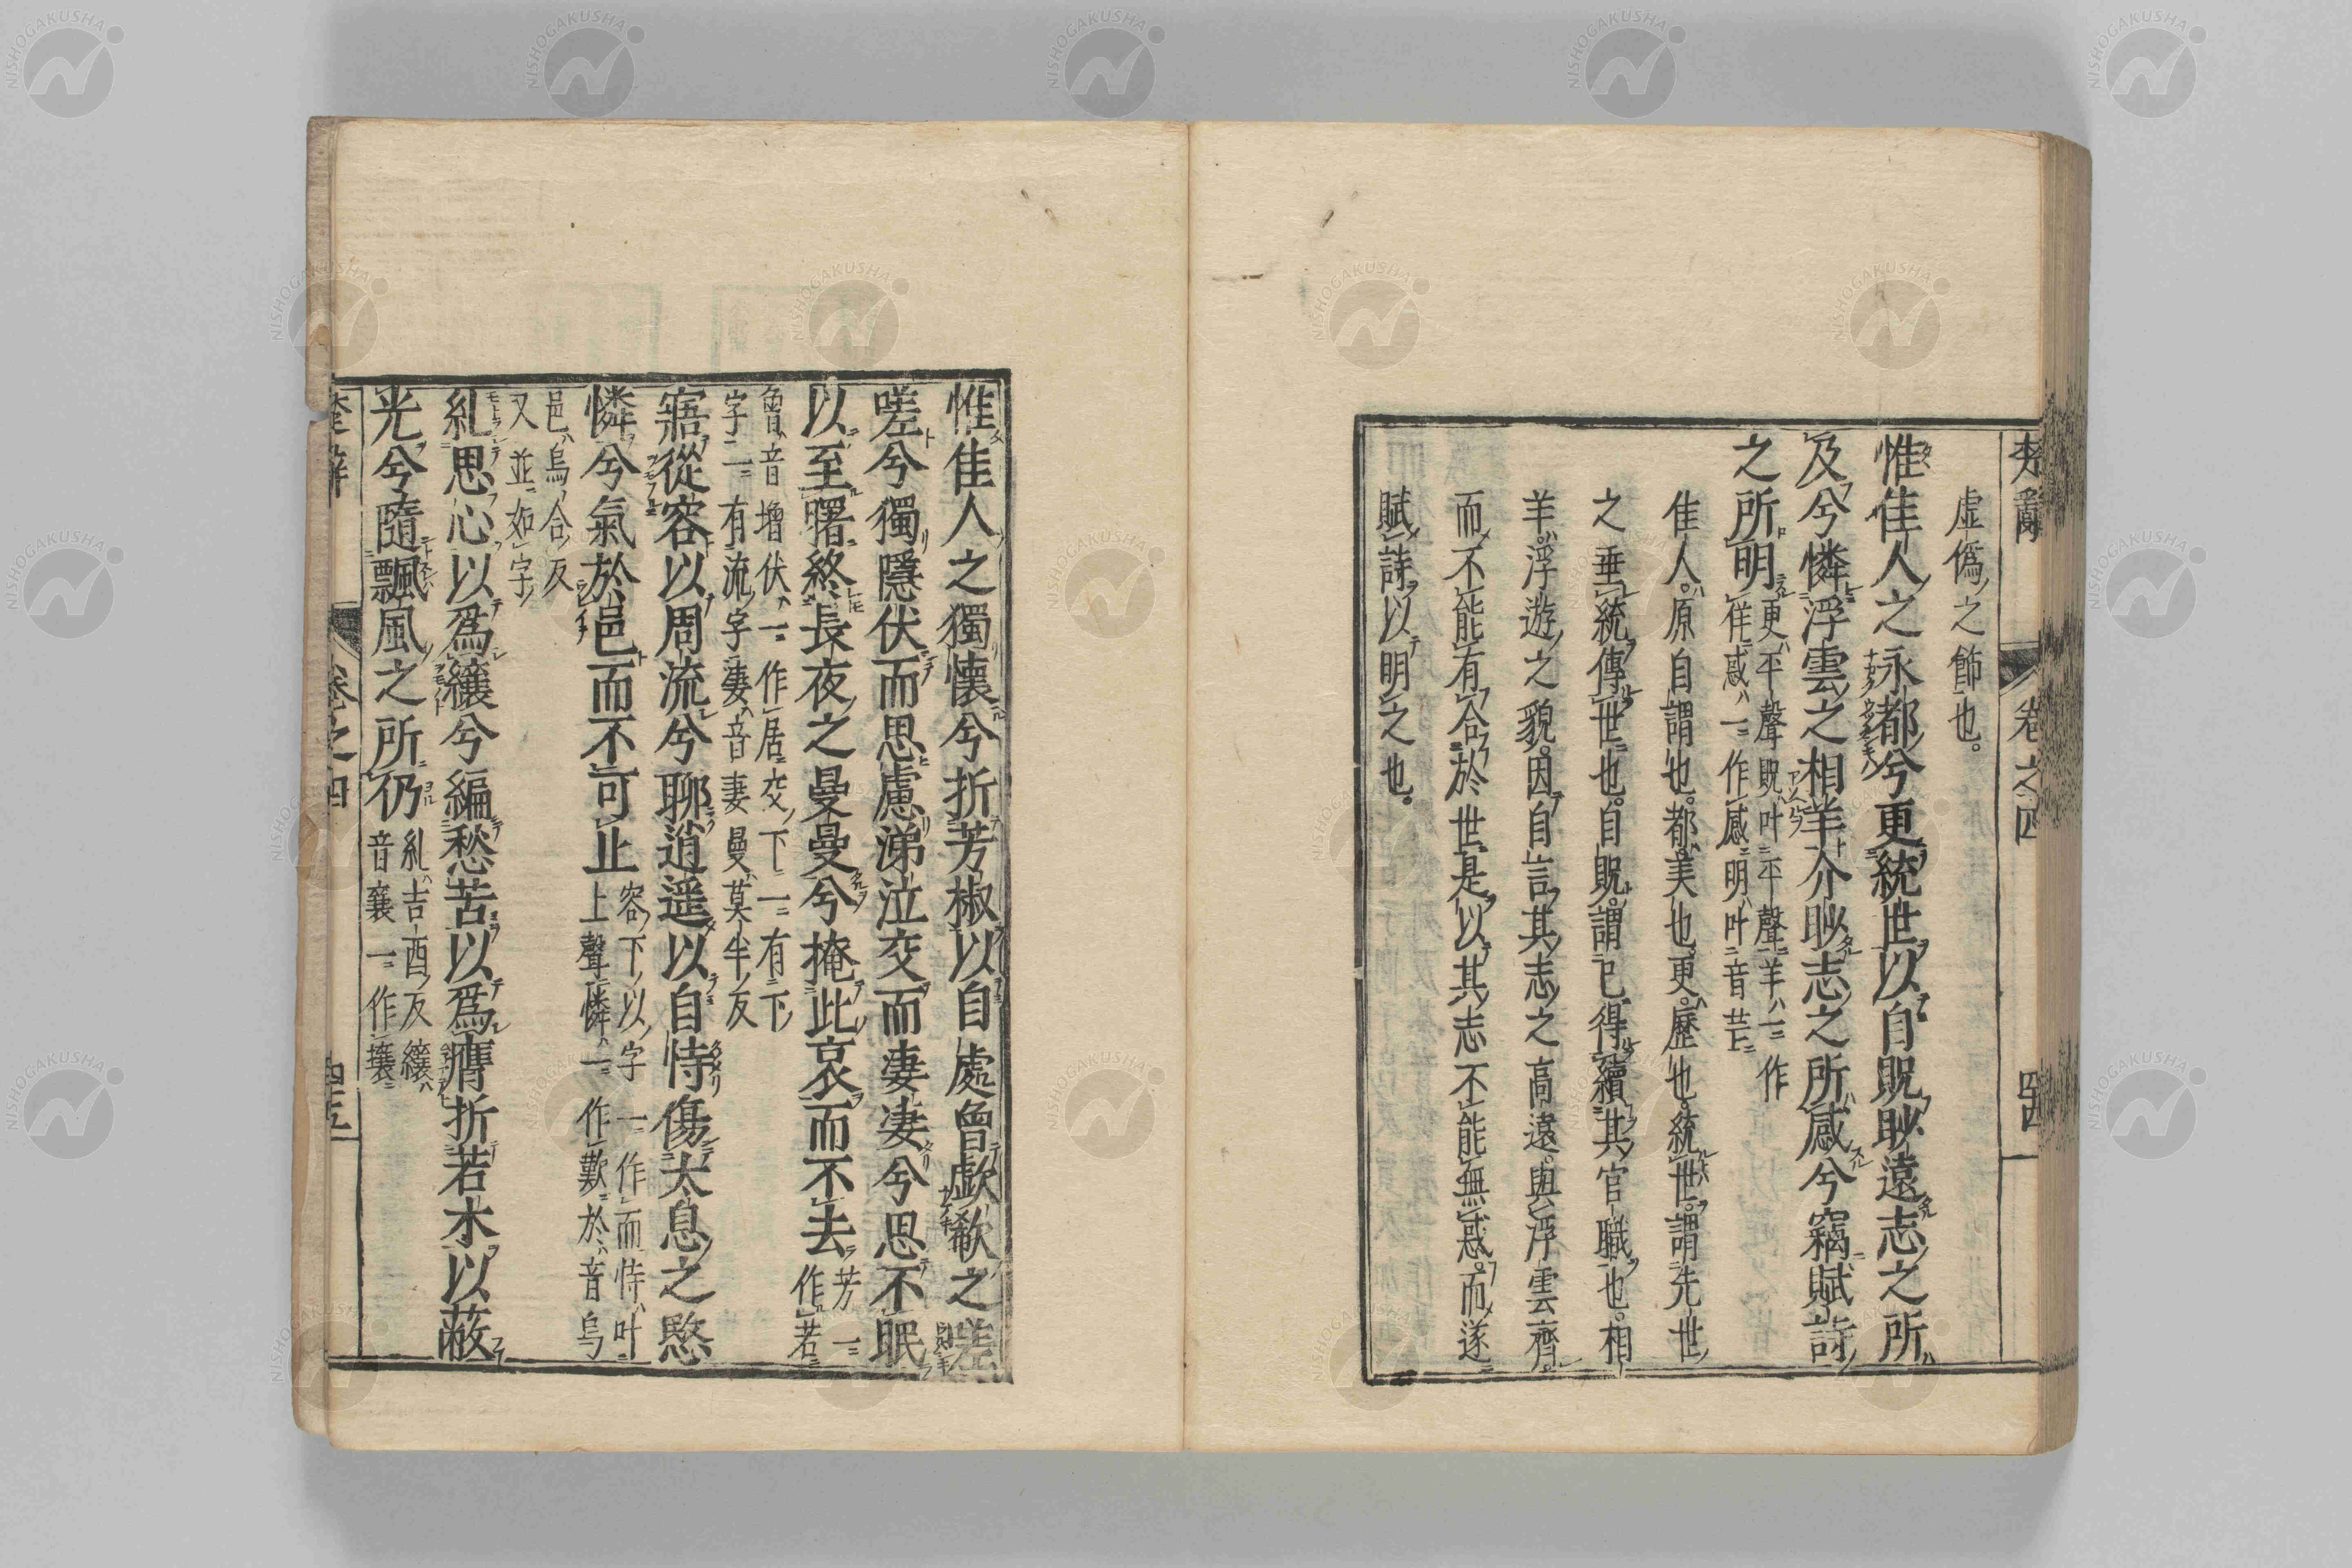 楚辭 卷之四 四四
虛僞之飾也。
惟佳人之永都兮更統世以自貺眇遠志之所
及兮憐浮雲之相羊介眇志之所惑兮竊賦詩
之所明
更平聲貺叶平聲羊一作
佯惑一作感明叶音芒
佳人。原自謂也。都。美也。更。歷也。統世。謂先世
之垂統傳世也。自貺。謂己得續其官職也。相
羊。浮遊之貌。因自言其志之高遠。與浮雲齊。
而不能有合於世。是以其志不能無惑。而遂
賦詩以明之也。
惟佳人之獨懷兮折芳椒以自處曾歔欷之嗟
嗟兮獨隱伏而思慮涕泣交而凄凄兮思不眠
以至曙終長夜之曼曼兮掩此哀而不去
芳一
作若
曾音增伏一作居交下一有下
字二有流字凄音妻曼莫半反
寤從容以周流兮聊逍遥以自恃傷太息之愍
憐兮氣於邑而不可止
容下以字一作而恃叶
上聲憐一作歎於音烏
邑烏合反
又並如字
糺思心以爲纕兮編愁苦以爲膺折若木以蔽
光兮隨飄風之所仍
糺吉酉反纕
音襄一作攘
楚辭 卷之四 四五
NISHOGAKUSHA